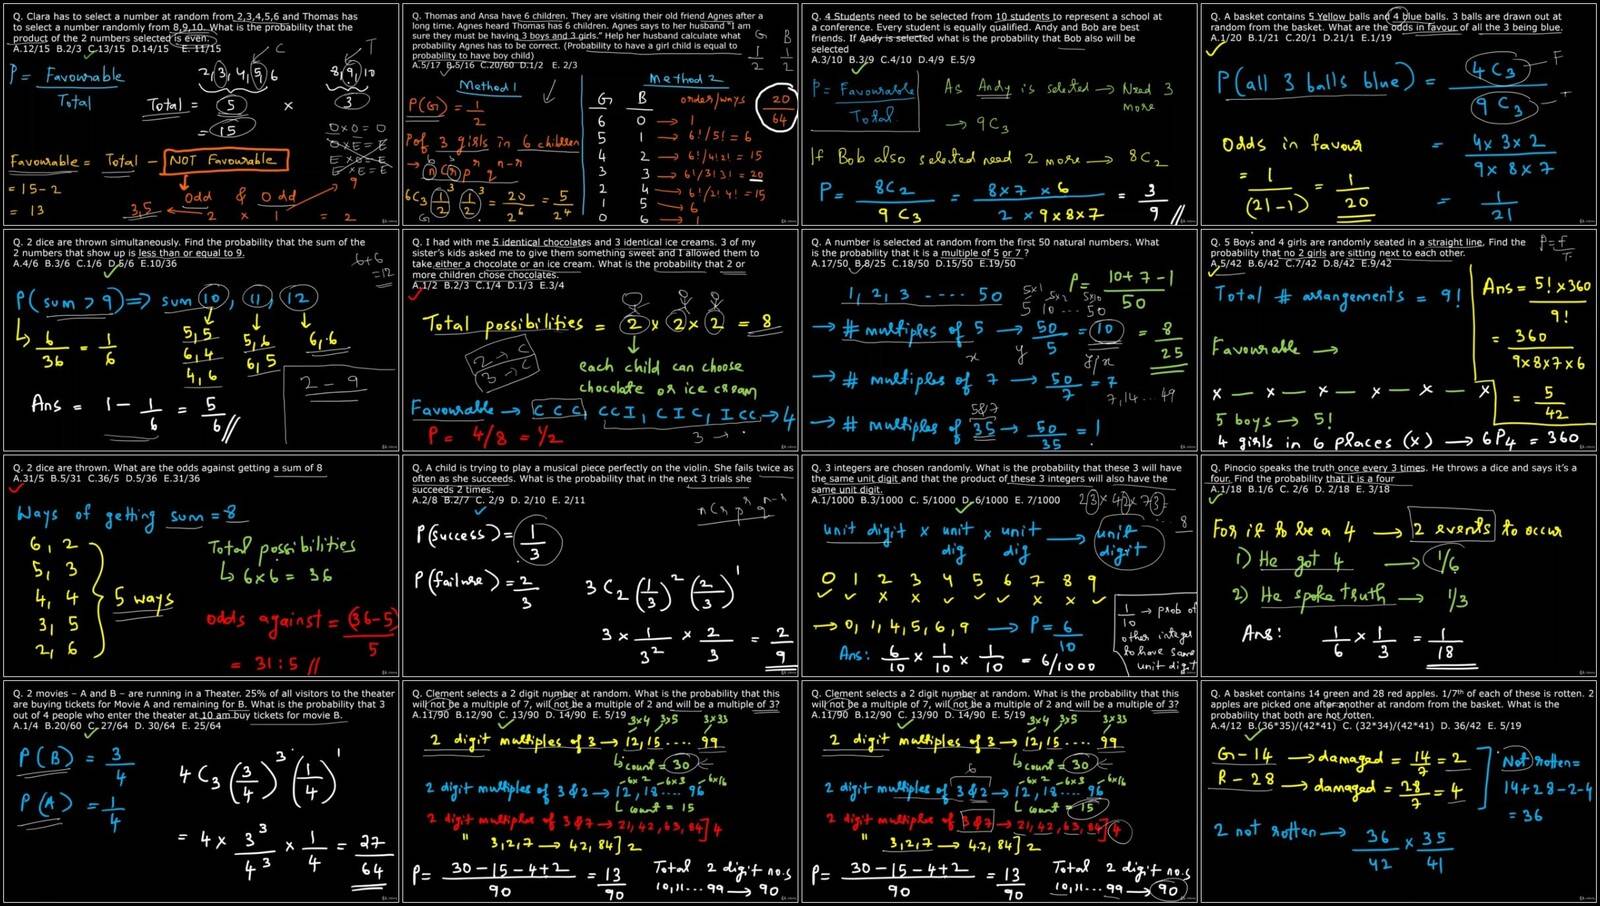 Q. Clara has to select a number at random from 2,3,4,5,6 and Thomas has
to select a number randomly from 8,9,10. What is the probability that the
product of the 2 numbers selected is even.
A.12/15 B.2/3 C.13/15 D.14/15 E.11/15
P = Favourable / Total
2,3,4,5,6 C
8,9,10 T
Total = 5 × 3
= 15
O×O = O
O×E = E
E×O = E
E×E = E
Favourable = Total - NOT Favourable
= 15-2
= 13
Odd & Odd
3,5 9
2 × 1 = 2
Q. Thomas and Ansa have 6 children. They are visiting their old friend Agnes after a
long time. Agnes heard Thomas has 6 children. Agnes says to her husband "I am
sure they must be having 3 boys and 3 girls." Help her husband calculate what
probability Agnes has to be correct. (Probability to have a girl child is equal to
probability to have boy child)
A.5/17 B.5/16 C.20/60 D.1/2 E. 2/3
G B
1/2 1/2
Method 1
P(G) = 1/2
P of 3 girls in 6 children
→ nCr p^r q^n-r
6C3 (1/2)^3 (1/2)^3 = 20/2^6 = 5/2^4
Method 2
G B order/ways
6 0 → 1
5 1 → 6!/5! = 6
4 2 → 6!/4!2! = 15
3 3 → 6!/3!3! = 20
2 4 → 6!/2!4! = 15
1 5 → 6
0 6 → 1
20/64
Q. 4 Students need to be selected from 10 students to represent a school at
a conference. Every student is equally qualified. Andy and Bob are best
friends. If Andy is selected what is the probability that Bob also will be
selected
A.3/10 B.3/9 C.4/10 D.4/9 E.5/9
P = Favourable / Total
As Andy is selected → Need 3
more
→ 9C3
If Bob also selected need 2 more → 8C2
P = 8C2 / 9C3 = 8×7×6 / 2×9×8×7 = 3/9
Q. A basket contains 5 Yellow balls and 4 blue balls. 3 balls are drawn out at
random from the basket. What are the odds in favour of all the 3 being blue.
A.1/20 B.1/21 C.20/1 D.21/1 E.1/19
P(all 3 balls blue) = 4C3 / 9C3
F
T
= 4×3×2 / 9×8×7
= 1/21
Odds in favour
= 1/(21-1) = 1/20
Q. 2 dice are thrown simultaneously. Find the probability that the sum of the
2 numbers that show up is less than or equal to 9.
A.4/6 B.3/6 C.1/6 D.5/6 E.10/36
6+6
=12
P(sum > 9) ⇒ sum 10, 11, 12
6/36 = 1/6
5,5 5,6 6,6
6,4 6,5
4,6
2 - 9
Ans = 1 - 1/6 = 5/6
Q. I had with me 5 identical chocolates and 3 identical ice creams. 3 of my
sister's kids asked me to give them something sweet and I allowed them to
take either a chocolate or an ice cream. What is the probability that 2 or
more children chose chocolates.
A.1/2 B.2/3 C.1/4 D.1/3 E.3/4
Total possibilities = 2 × 2 × 2 = 8
2 → C
3 → C
each child can choose
chocolate or ice cream
Favourable → CCC, CCI, CIC, ICC → 4
P = 4/8 = 1/2
3 →
Q. A number is selected at random from the first 50 natural numbers. What
is the probability that it is a multiple of 5 or 7 ?
A.17/50 B.8/25 C.18/50 D.15/50 E.19/50
1, 2, 3 ---- 50
5×1 5×2 5×10
5 10 ... 50
P = 10+7-1 / 50
= 8/25
→ # multiples of 5 → 50/5 = 10
x y y/x
→ # multiples of 7 → 50/7 = 7
7,14 ... 49
5&7
→ # multiples of 35 → 50/35 = 1
Q. 5 Boys and 4 girls are randomly seated in a straight line, Find the
probability that no 2 girls are sitting next to each other.
A.5/42 B.6/42 C.7/42 D.8/42 E.9/42
P = F/T
Total # arrangements = 9!
Favourable →
× — × — × — × — × — ×
5 boys → 5!
4 girls in 6 places (×) → 6P4 = 360
Ans = 5! × 360 / 9!
= 360 / 9×8×7×6
= 5/42
Q. 2 dice are thrown. What are the odds against getting a sum of 8
A.31/5 B.5/31 C.36/5 D.5/36 E.31/36
Ways of getting sum = 8
6, 2
5, 3
4, 4
3, 5
2, 6
5 ways
Total possibilities
↳ 6×6 = 36
odds against = (36-5)/5
= 31:5
Q. A child is trying to play a musical piece perfectly on the violin. She fails twice as
often as she succeeds. What is the probability that in the next 3 trials she
succeeds 2 times.
A.2/8 B.2/7 C.2/9 D. 2/10 E. 2/11
nCr p^r q^n-r
P(success) = 1/3
P(failure) = 2/3
3C2 (1/3)^2 (2/3)^1
3 × 1/3^2 × 2/3 = 2/9
Q. 3 integers are chosen randomly. What is the probability that these 3 will have
the same unit digit and that the product of these 3 integers will also have the
same unit digit.
A.1/1000 B.3/1000 C. 5/1000 D. 6/1000 E. 7/1000
unit digit × unit dig × unit dig → unit digit
0 1 2 3 4 5 6 7 8 9
✓ ✓ × × ✓ ✓ ✓ × × ✓
→ 0, 1, 4, 5, 6, 9 → P = 6/10
Ans: 6/10 × 1/10 × 1/10 = 6/1000
1/10 → prob of
other integer
to have same
unit digit
Q. Pinocio speaks the truth once every 3 times. He throws a dice and says it's a
four. Find the probability that it is a four
A.1/18 B.1/6 C. 2/6 D. 2/18 E. 3/18
For it to be a 4 → 2 events to occur
1) He got 4 → 1/6
2) He spoke truth → 1/3
Ans: 1/6 × 1/3 = 1/18
Q. 2 movies – A and B – are running in a Theater. 25% of all visitors to the theater
are buying tickets for Movie A and remaining for B. What is the probability that 3
out of 4 people who enter the theater at 10 am buy tickets for movie B.
A.1/4 B.20/60 C. 27/64 D. 30/64 E. 25/64
P(B) = 3/4
P(A) = 1/4
4C3 (3/4)^3 (1/4)^1
= 4 × 3^3/4^3 × 1/4 = 27/64
Q. Clement selects a 2 digit number at random. What is the probability that this
will not be a multiple of 7, will not be a multiple of 2 and will be a multiple of 3?
A.11/90 B.12/90 C. 13/90 D. 14/90 E. 5/19
3×4 3×5 3×33
2 digit multiples of 3 → 12, 15 .... 99
↳ count = 30
6×2 6×3 6×16
2 digit multiples of 3&2 → 12, 18 .... 96
↳ count = 15
2 digit multiples of 3&7 → 21, 42, 63, 84] 4
" 3,2,7 → 42, 84] 2
P = 30-15-4+2 / 90 = 13/90
Total 2 digit no.s
10,11... 99 → 90
Q. Clement selects a 2 digit number at random. What is the probability that this
will not be a multiple of 7, will not be a multiple of 2 and will be a multiple of 3?
A.11/90 B.12/90 C. 13/90 D. 14/90 E. 5/19
3×4 3×5 3×33
2 digit multiples of 3 → 12, 15 .... 99
↳ count = 30
6
6×2 6×3 6×16
2 digit multiples of 3&2 → 12, 18 .... 96
↳ count = 15
2 digit multiples of 3&7 → 21, 42, 63, 84] 4
" 3,2,7 → 42, 84] 2
P = 30-15-4+2 / 90 = 13/90
Total 2 digit no.s
10,11... 99 → 90
Q. A basket contains 14 green and 28 red apples. 1/7th of each of these is rotten. 2
apples are picked one after another at random from the basket. What is the
probability that both are not rotten.
A.4/12 B.(36*35)/(42*41) C. (32*34)/(42*41) D. 36/42 E. 5/19
G - 14 → damaged = 14/7 = 2
R - 28 → damaged = 28/7 = 4
Not rotten =
14+28-2-4
= 36
2 not rotten → 36/42 × 35/41